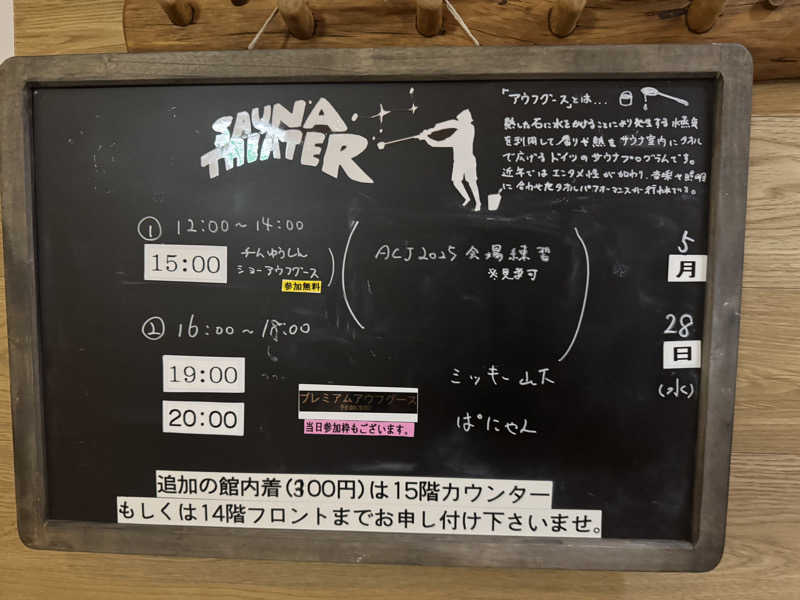 SAUNA
THEATER
「アウフグース」とは...
熱した石に水をかけることにより発生する水蒸気
を利用して香りや熱をサウナ室内にタオル
で広げるドイツのサウナプログラムです。
近年ではエンタメ性が加わり、音楽や照明
に合わせたタオルパフォーマンスが行われている。
① 12:00～14:00
15:00
チームゆうしん
ショーアウフグース
参加無料
ACJ2025 会場練習
発見者可
5
月
28
日
(水)
② 16:00～18:00
19:00
ミッキー山下
20:00
プレミアムアウフグース
当日参加枠もございます。
ぱにゃん
追加の館内着(300円)は15階カウンター
もしくは14階フロントまでお申し付け下さいませ。